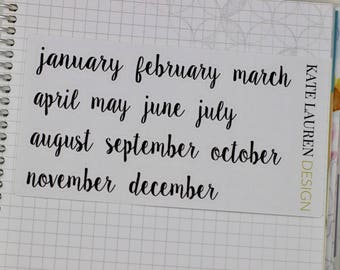 january february march
april may june july
august september october
november december
KATE LAUREN DESIGN